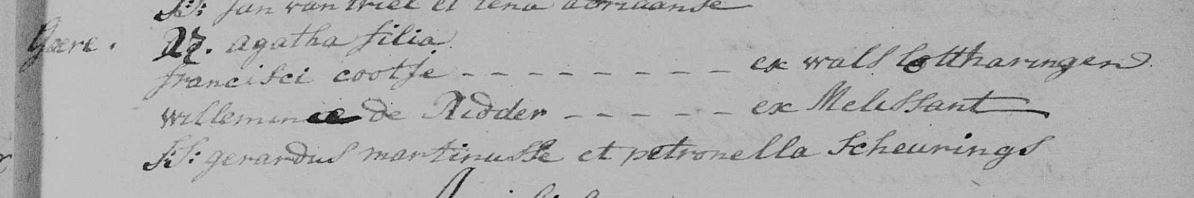 SS: Jan van Driel et Lena adriaanse
Goere. 27. agatha filia
francisci cootse - - - - - - - - - ex wals Lottharingen
willemince de Ridder - - - - - - ex Melissant
SS: gerardus martinusse et petronella Scheurings